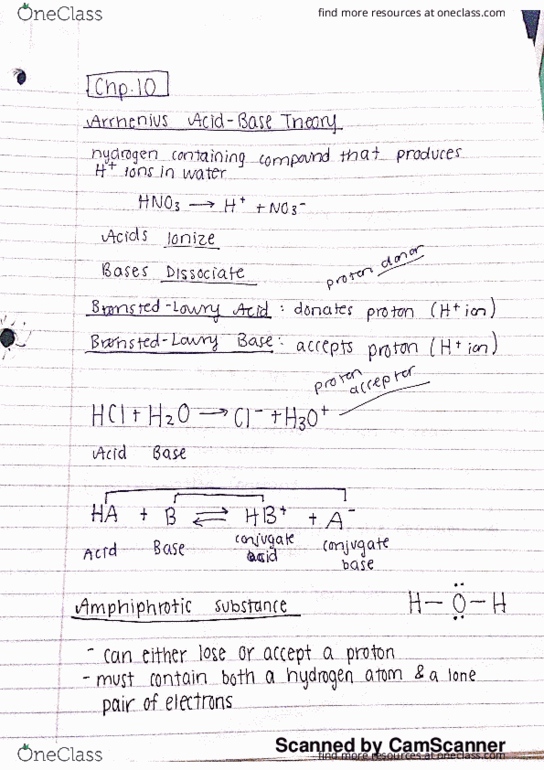 OneClass
find more resources at oneclass.com
Chp.10
Arrhenius Acid-Base Theory
hydrogen containing compound that produces
H⁺ ions in water
HNO₃ → H⁺ + NO₃⁻
Acids Ionize
Bases Dissociate
proton donor
Brønsted-Lowry Acid : donates proton (H⁺ ion)
Brønsted-Lowry Base : accepts proton (H⁺ ion)
proton
acceptor
HCl + H₂O → Cl⁻ + H₃O⁺
Acid Base
HA + B ⇌ HB⁺ + A⁻
Acid Base conjugate acid conjugate base
Amphiphrotic substance
H–O–H
- can either lose or accept a proton
- must contain both a hydrogen atom & a lone
pair of electrons
Scanned by CamScanner
OneClass
find more resources at oneclass.com